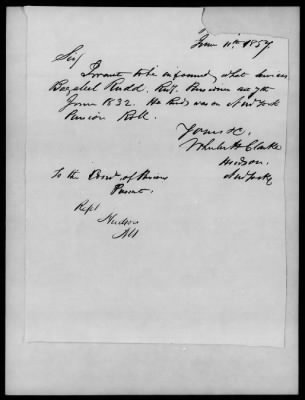 June 11th 1857
Sir/
I want to be informed, what
Bezaleel Rudd. Rev. Pensioner
June 1832. He then was on New York
Pension Roll.
Yours &c.
Clarke
Hudson.
New York
To the Com. of Pensions
Hudson